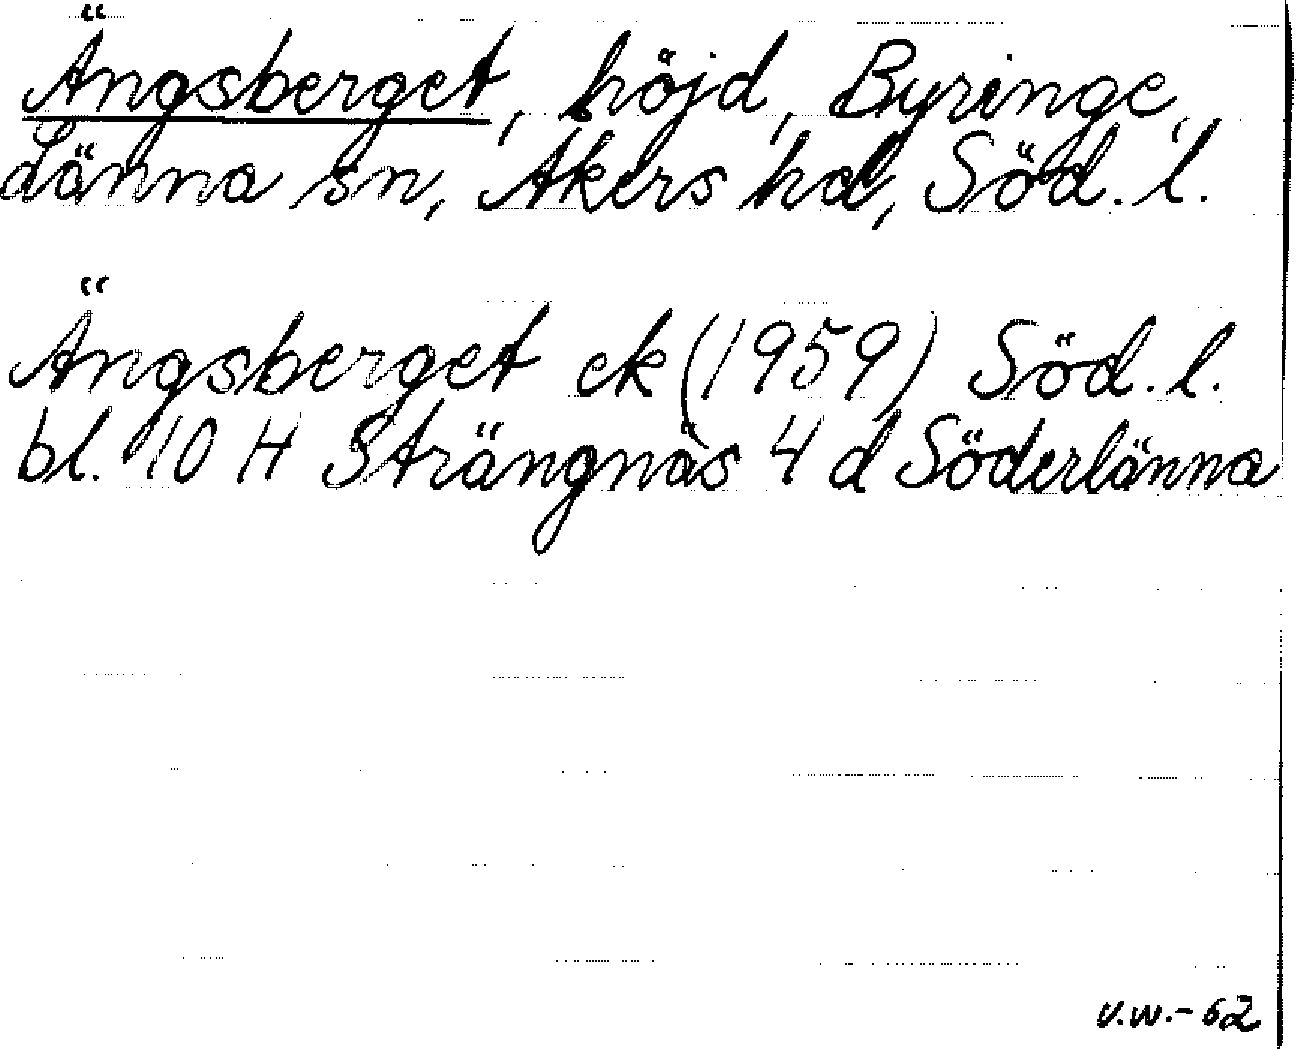 Ängsberget, höjd, Byringe,
Länna sn, Åkers hd, Söd. l.
Ängsberget ek (1959) Söd. l.
bl. 10 H Strängnäs 4 d Söderlänna
v.w.-62